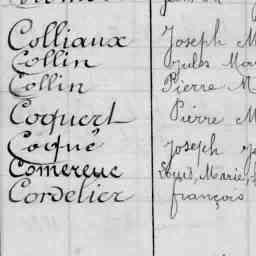 Colliaux Joseph M
Collin Jules Mar
Collin Pierre M
Coquert Pierre M
Coqué Joseph
Comereuc Louis, Marie,
Cordelier François